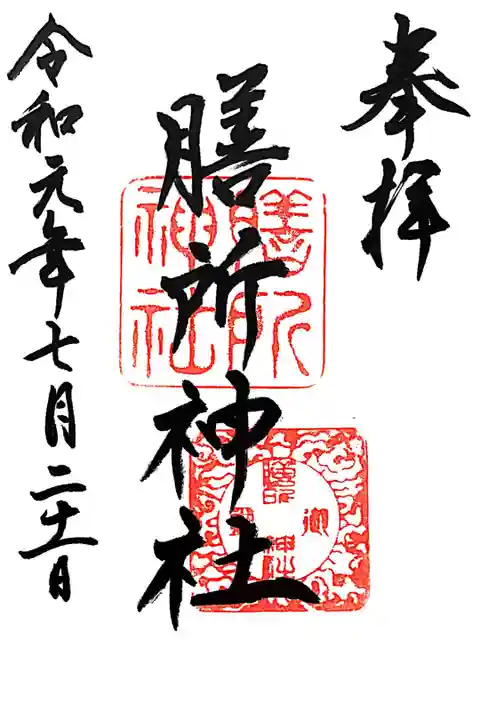 奉拝
膳所神社
令和元年七月二十一日
膳所
神社
膳所
神社